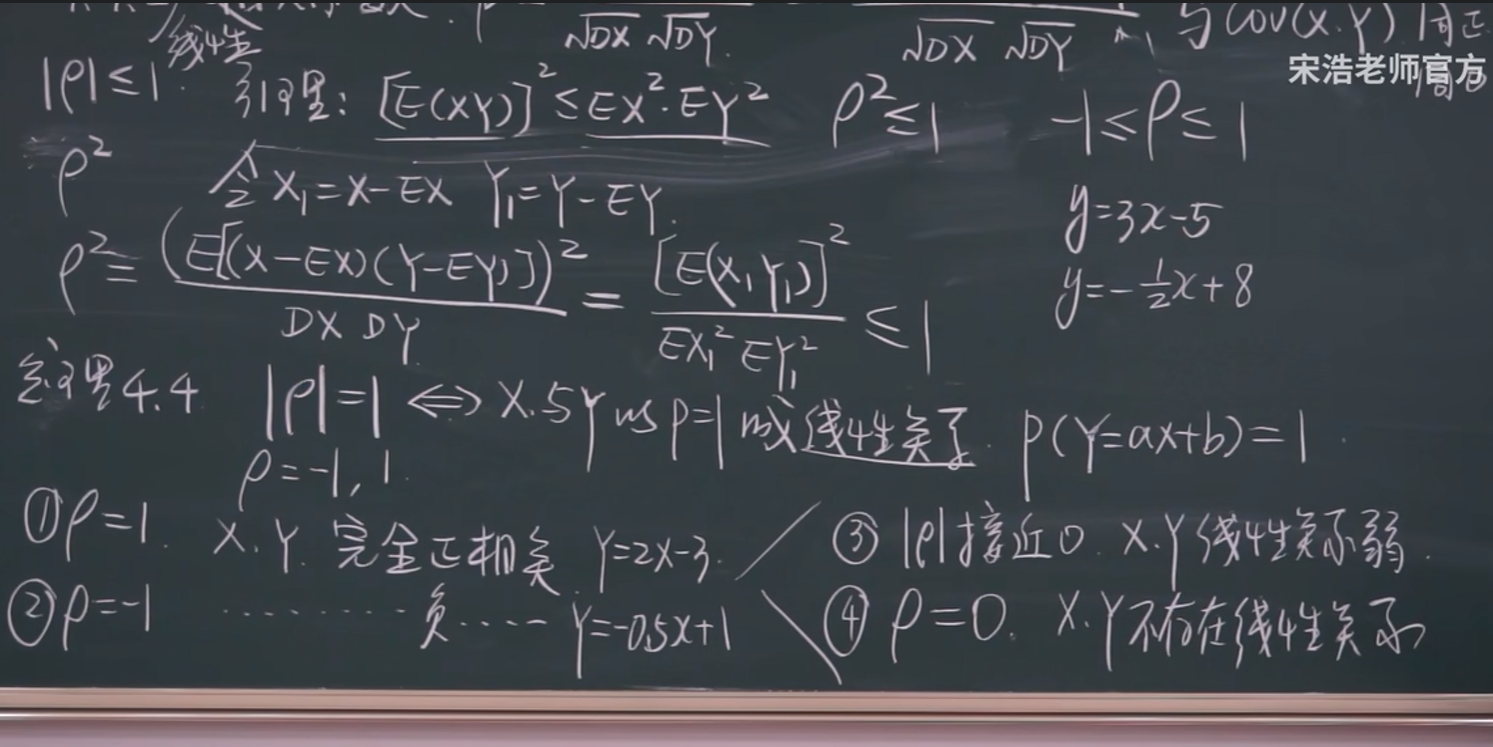 √DX √DY. √DX √DY 与Cov(X.Y)同正
线性
宋浩老师官方
|ρ|≤1. 引理: [E(XY)]²≤EX²·EY² ρ²≤1 -1≤ρ≤1
ρ² 令X₁=X-EX Y₁=Y-EY.
y=3x-5
ρ²= (E[(X-EX)(Y-EY)])² / DX DY = [E(X₁Y₁)]² / EX₁² EY₁² ≤1
y=-1/2x+8
定理4.4 |ρ|=1 ⇔ X.与Y以P=1成线性关系. P(Y=ax+b)=1.
ρ=-1, 1.
①ρ=1. X.Y.完全正相关. Y=2X-3.
②ρ=-1 ········负···· Y=-0.5X+1
③|ρ|接近0. X.Y线性关系弱.
④ρ=0. X.Y不存在线性关系